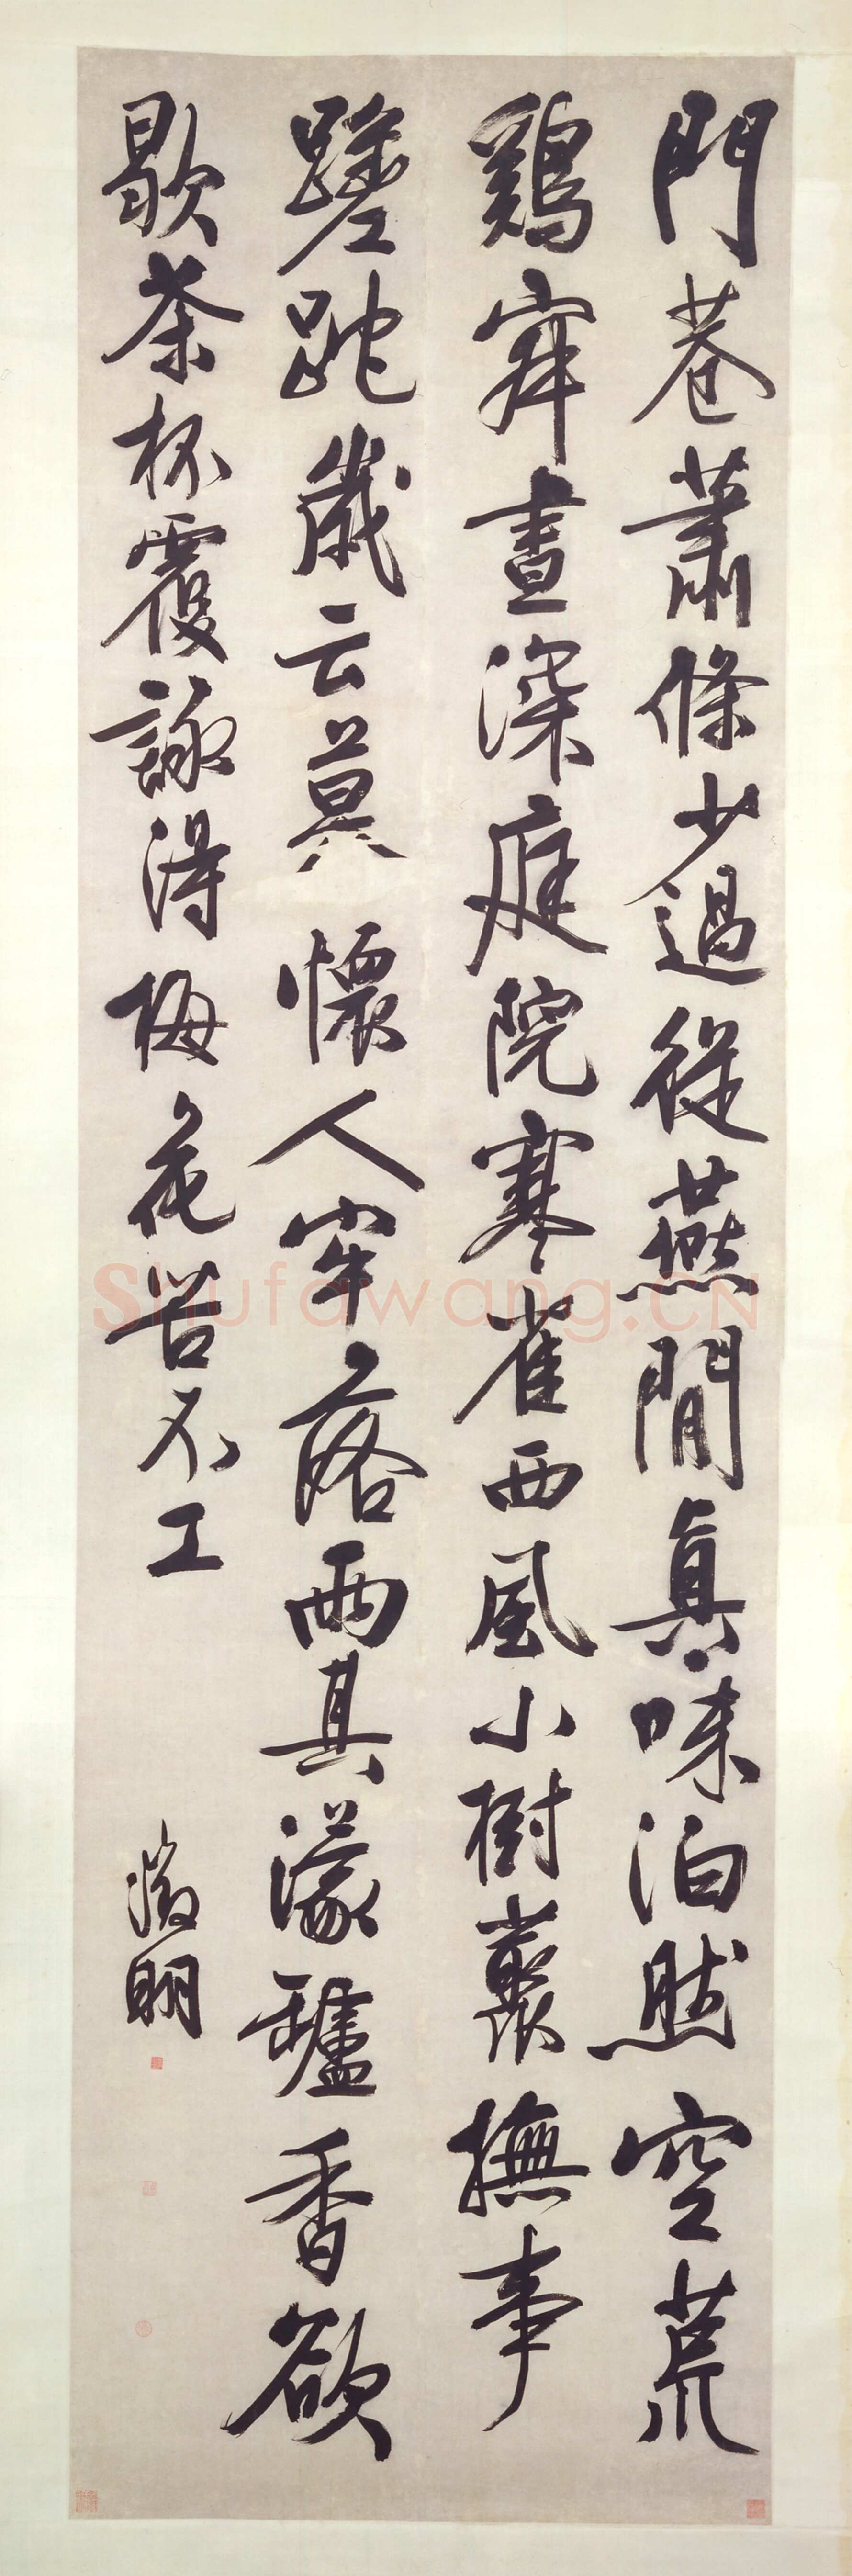 門巷蕭條少過從燕閒真味泊然空荒
鷄寂晝深庭院寒雀西風小樹叢撫事
蹉跎歲云莫懷人牢落兩其濛罏香欲
歇茶杯覆詠得梅花苦不工
徵明
Shufawang.CN